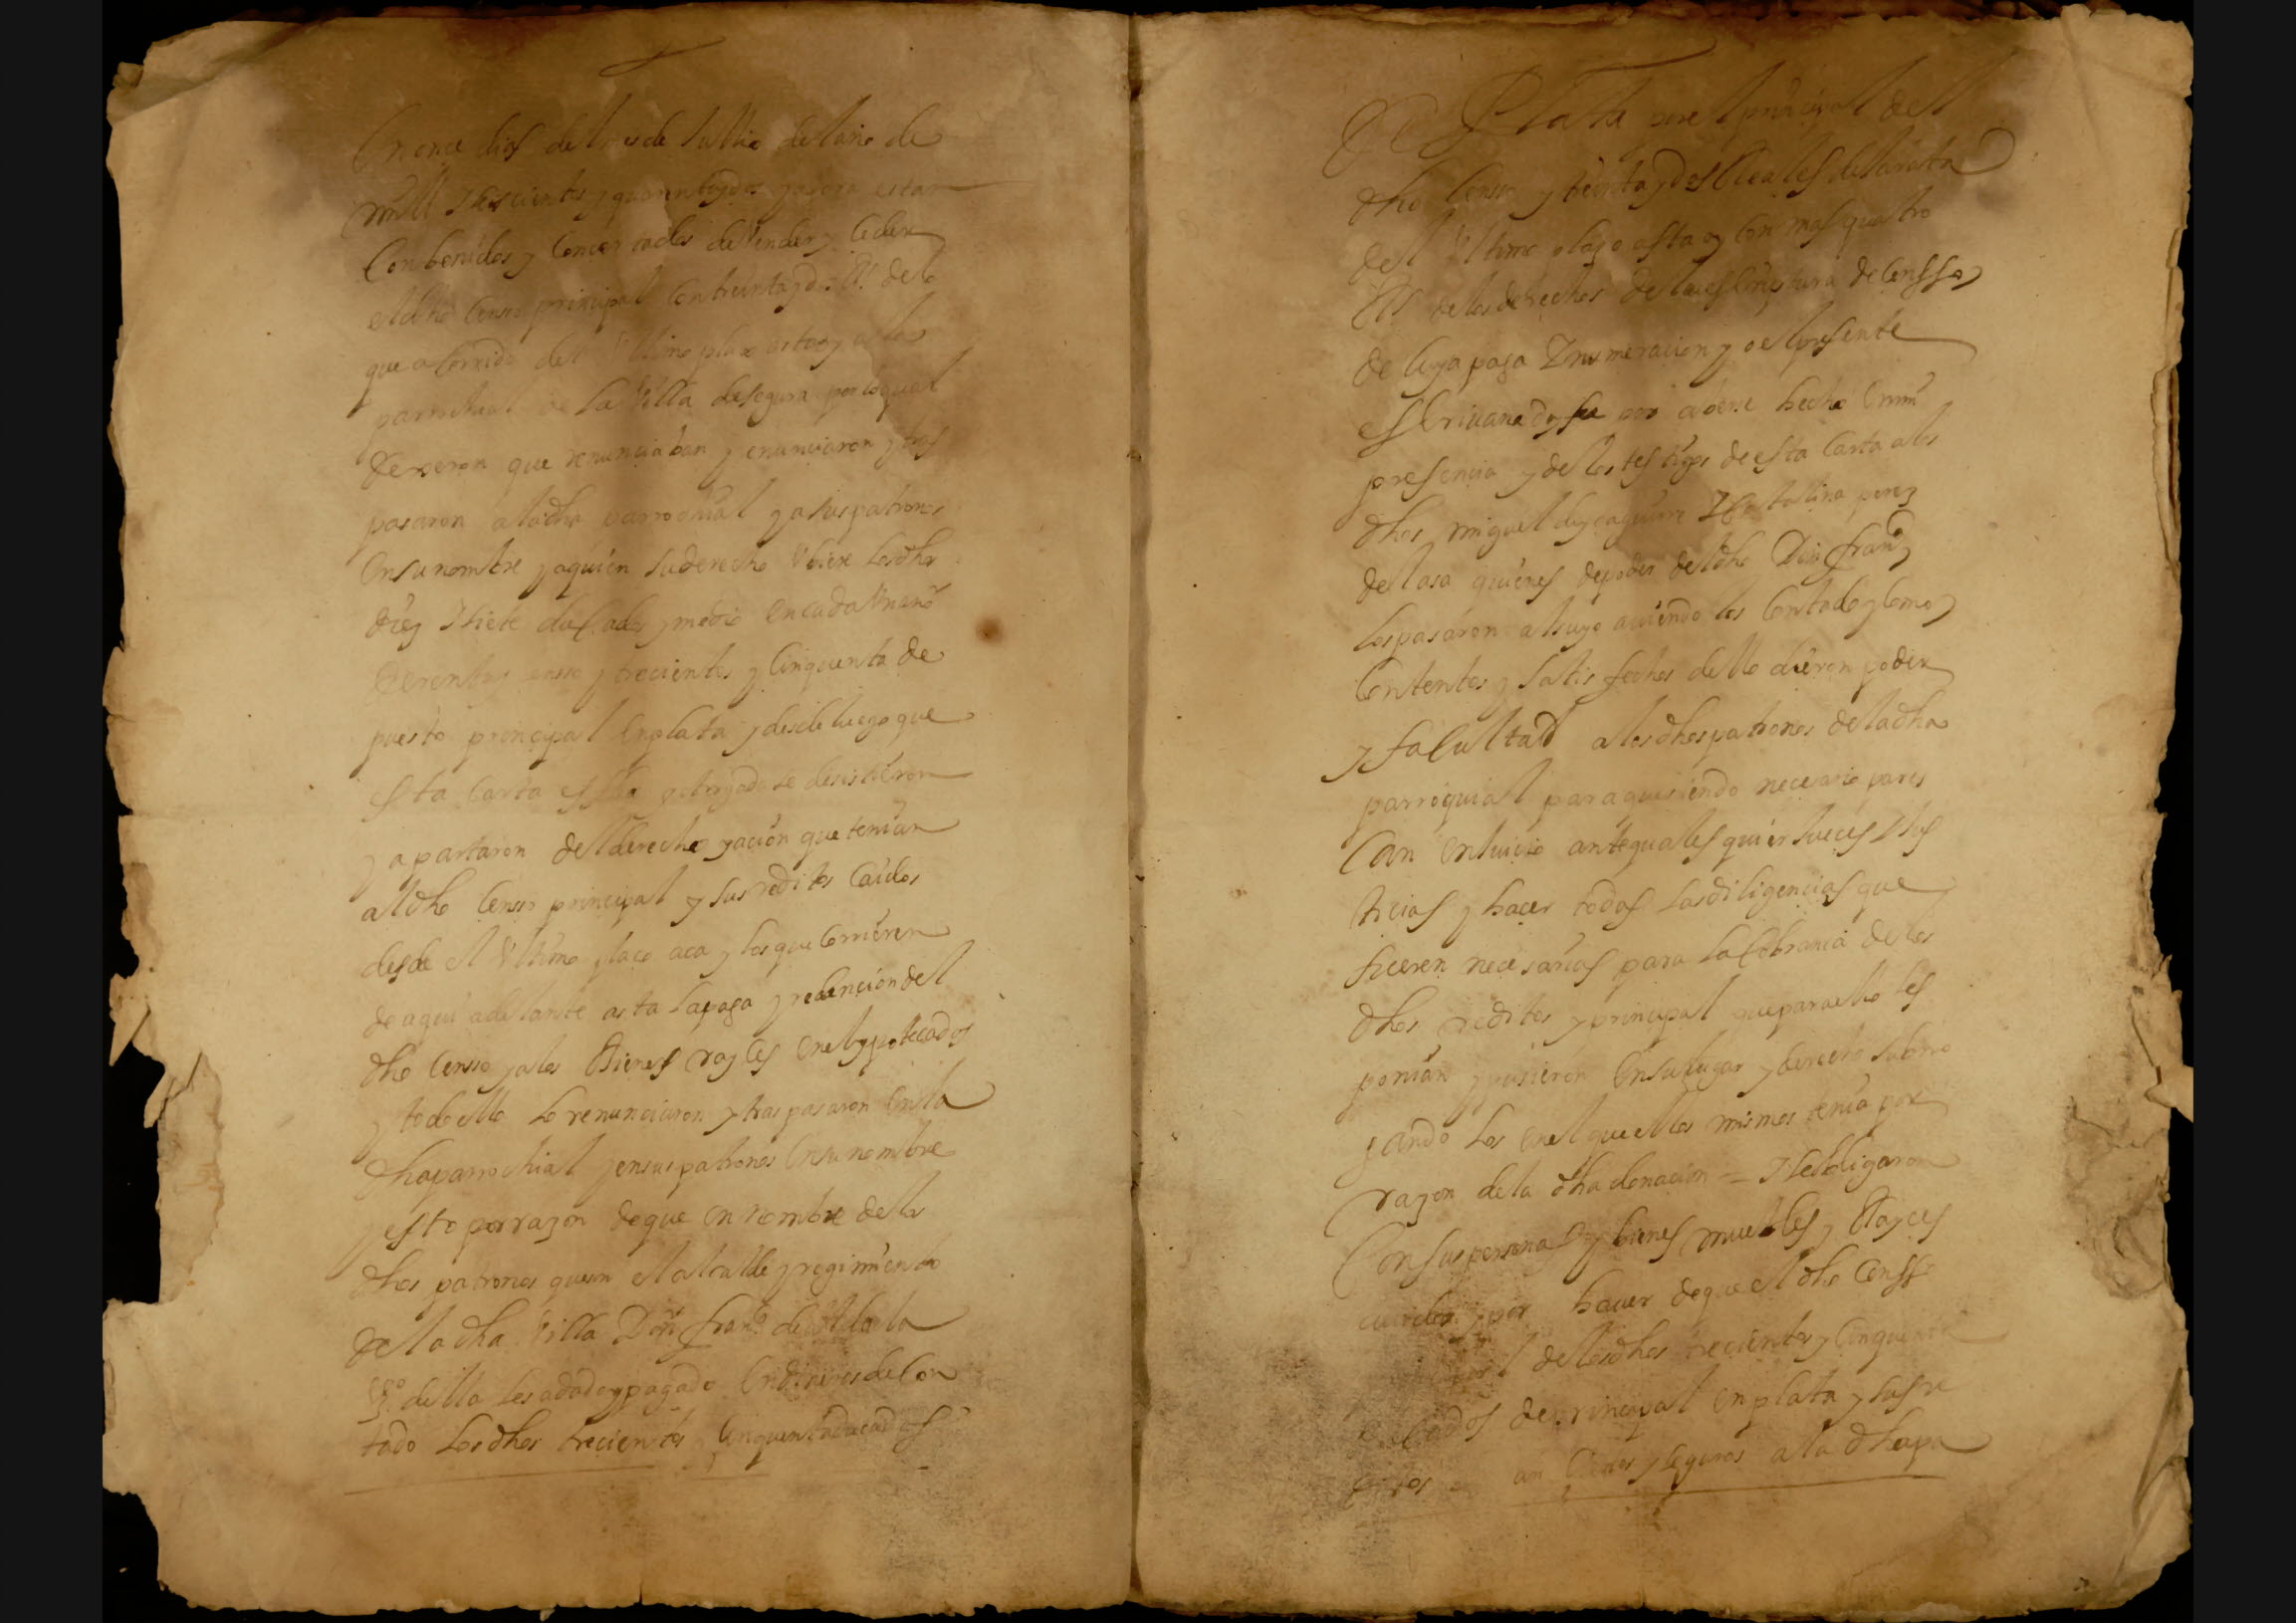 En once dias del mes de Jullio del año de
mill y seiscientos y quarenta y dos y agora estan
Conbenidos y Concertados de Vender y Ceder
el dho Censo principal Con treinta y dos Rs. de lo
que a Corrido del Ultimo plaço asta oy a la
parrochial de la Villa de segura por lo qual
dixeron que renunciaban y renunciaron y tras
pasaron a la dha parrochial y a sus patronos
En su nombre y a quien su derecho Ubiere los dhos
diez y siete ducados y medio en cada Un año
de renta y censo y trecientos y Cinquenta de
puesto principal En plata y desde luego que
esta Carta es otorgada se desistieron
y apartaron del derecho y acion que tenian
al dho Censo principal y sus reditos Caidos
desde el Ultimo plaço aca y los que Corrieren
de aqui adelante asta la paga y redencion del
dho Censo y a los Bienes rayces en el ypotecados
y todo ello lo renunciaron y traspasaron En la
dha parrochial y en sus patronos En su nombre
y esto por razon de que en nombre de los
dhos patronos que son el alcalde y regimiento
de la dha Villa Don franco. de
Vzo. della les a dado y pagado En dineros de Con
tado los dhos trecientos y Cinquenta ducados
De Plata por el principal del
dho Censo y treinta y dos Reales de la rata
del Ultimo plaço asta oy Con mas quatro
Rs. de los derechos de la escriptura de Censso
de Cuya paga y numeracion yo el presente
escrivano doy fee por aberse hecho En mi
presencia y de los testigos de esta Carta a los
dhos miguel de yçaguirre y Catallina perez
de lasa quienes de poder del dho Don franco
los pasaron al suyo aviendo los Contado y Como
Contentos y satisfechos dello dieron poder
y facultad a los dhos patronos de la dha
parroquial para que siendo necesario pares
Can En Juicio ante quales quier Jueces y Jus
ticias y hacer todas las diligencias que
fueren necesarias para la Cobrança de los
dhos reditos y principal que para ello les
ponian y pusieron En su lugar y derecho subrro
gando los en el que ellos mismos tenia por
razon de la dha donacion = y se obligaron
Con sus personas y bienes muebles y Rayces
avidos y por haver de que el dho Censso
de los dhos trecientos y Cinquenta
ducados de principal en plata y sus re
ditos Ciertos y seguros a la dha pa